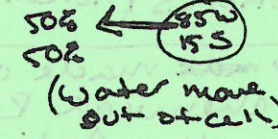 50% ← 85W
50% 15S
(Water move
out of cell)